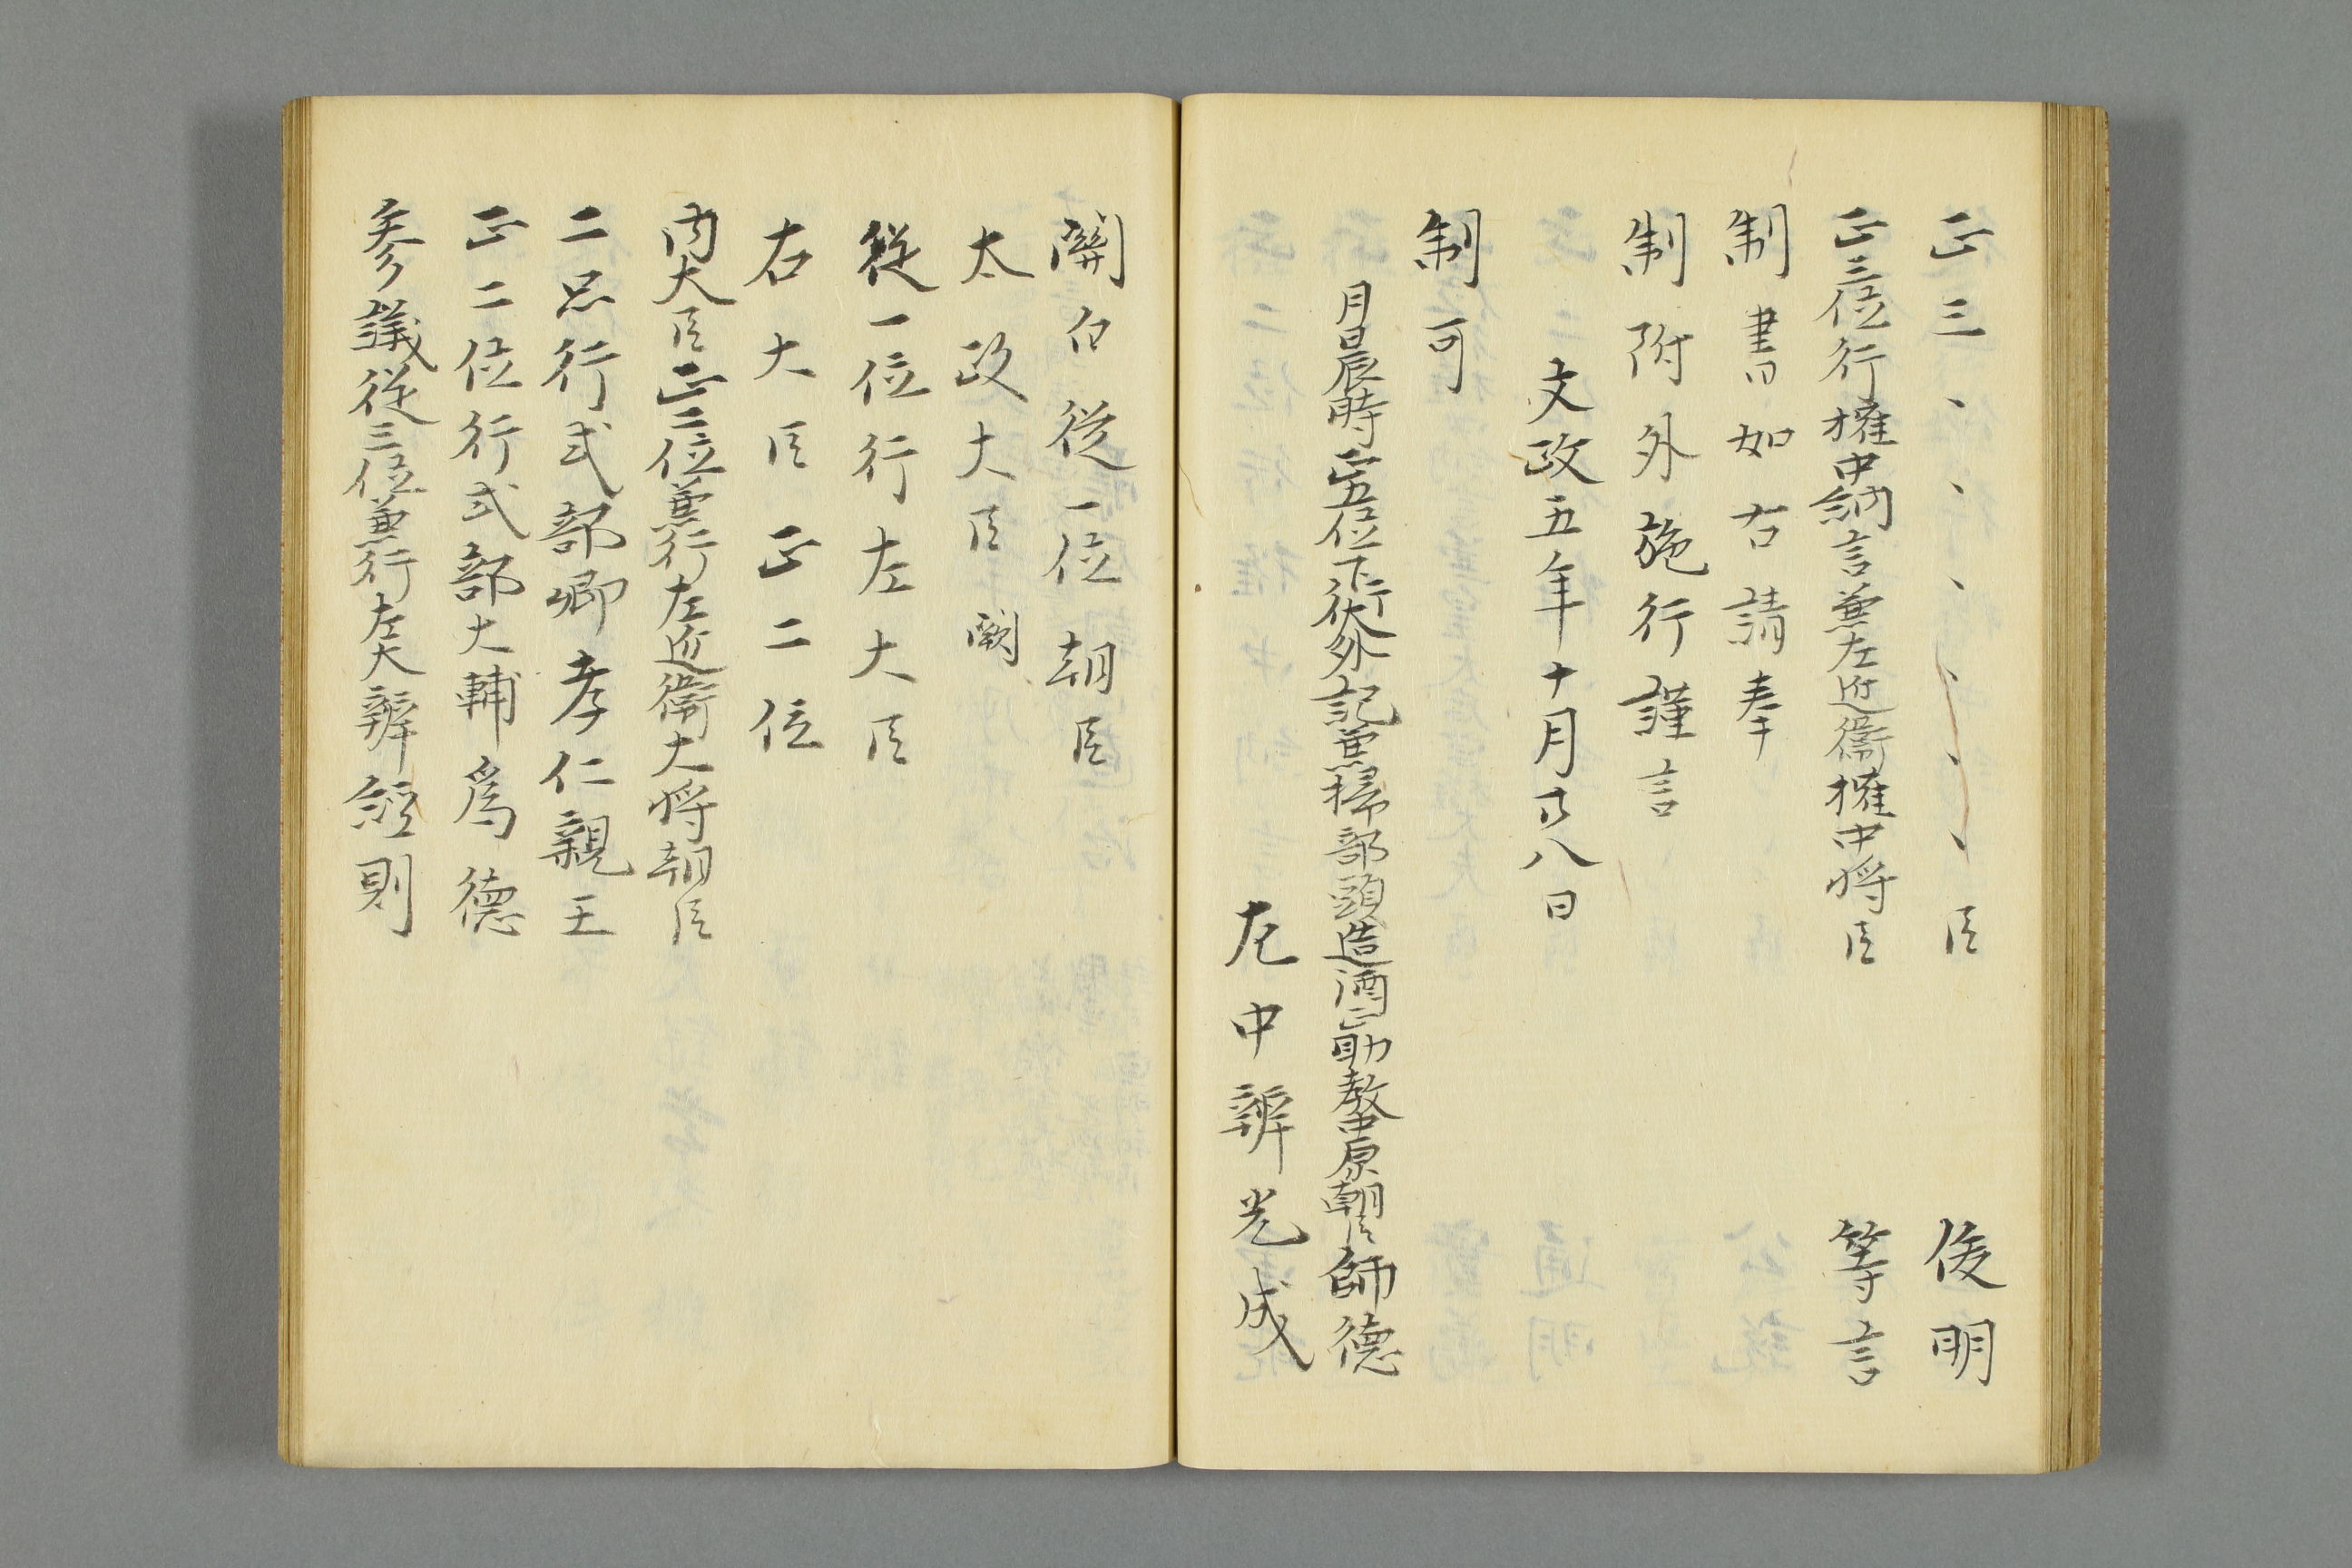 正三、、、、、、臣 俊明
正三位行權中納言兼左近衞權中將臣 等言
制書如右請奉
制附外施行謹言
文政五年十月廿八日
制可
月日辰時正五位下行大外記兼掃部頭造酒正助教中原朝臣師德
左中辨光成
關白從一位朝臣
太政大臣闕
從一位行左大臣
右大臣正二位
内大臣正二位兼行左近衞大將朝臣
二品行式部卿孝仁親王
正二位行式部大輔爲德
參議從三位兼行左大辨經則